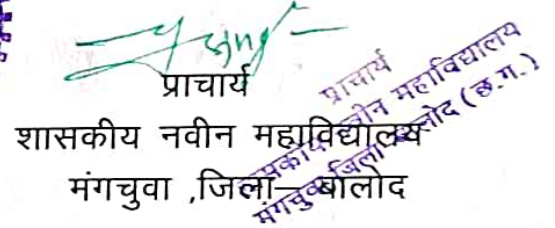 प्राचार्य
शासकीय नवीन महाविद्यालय
मंगचुवा ,जिला– बालोद
प्राचार्य
नवीन महाविद्यालय
मंगचुवा जिला बालोद (छ.ग.)